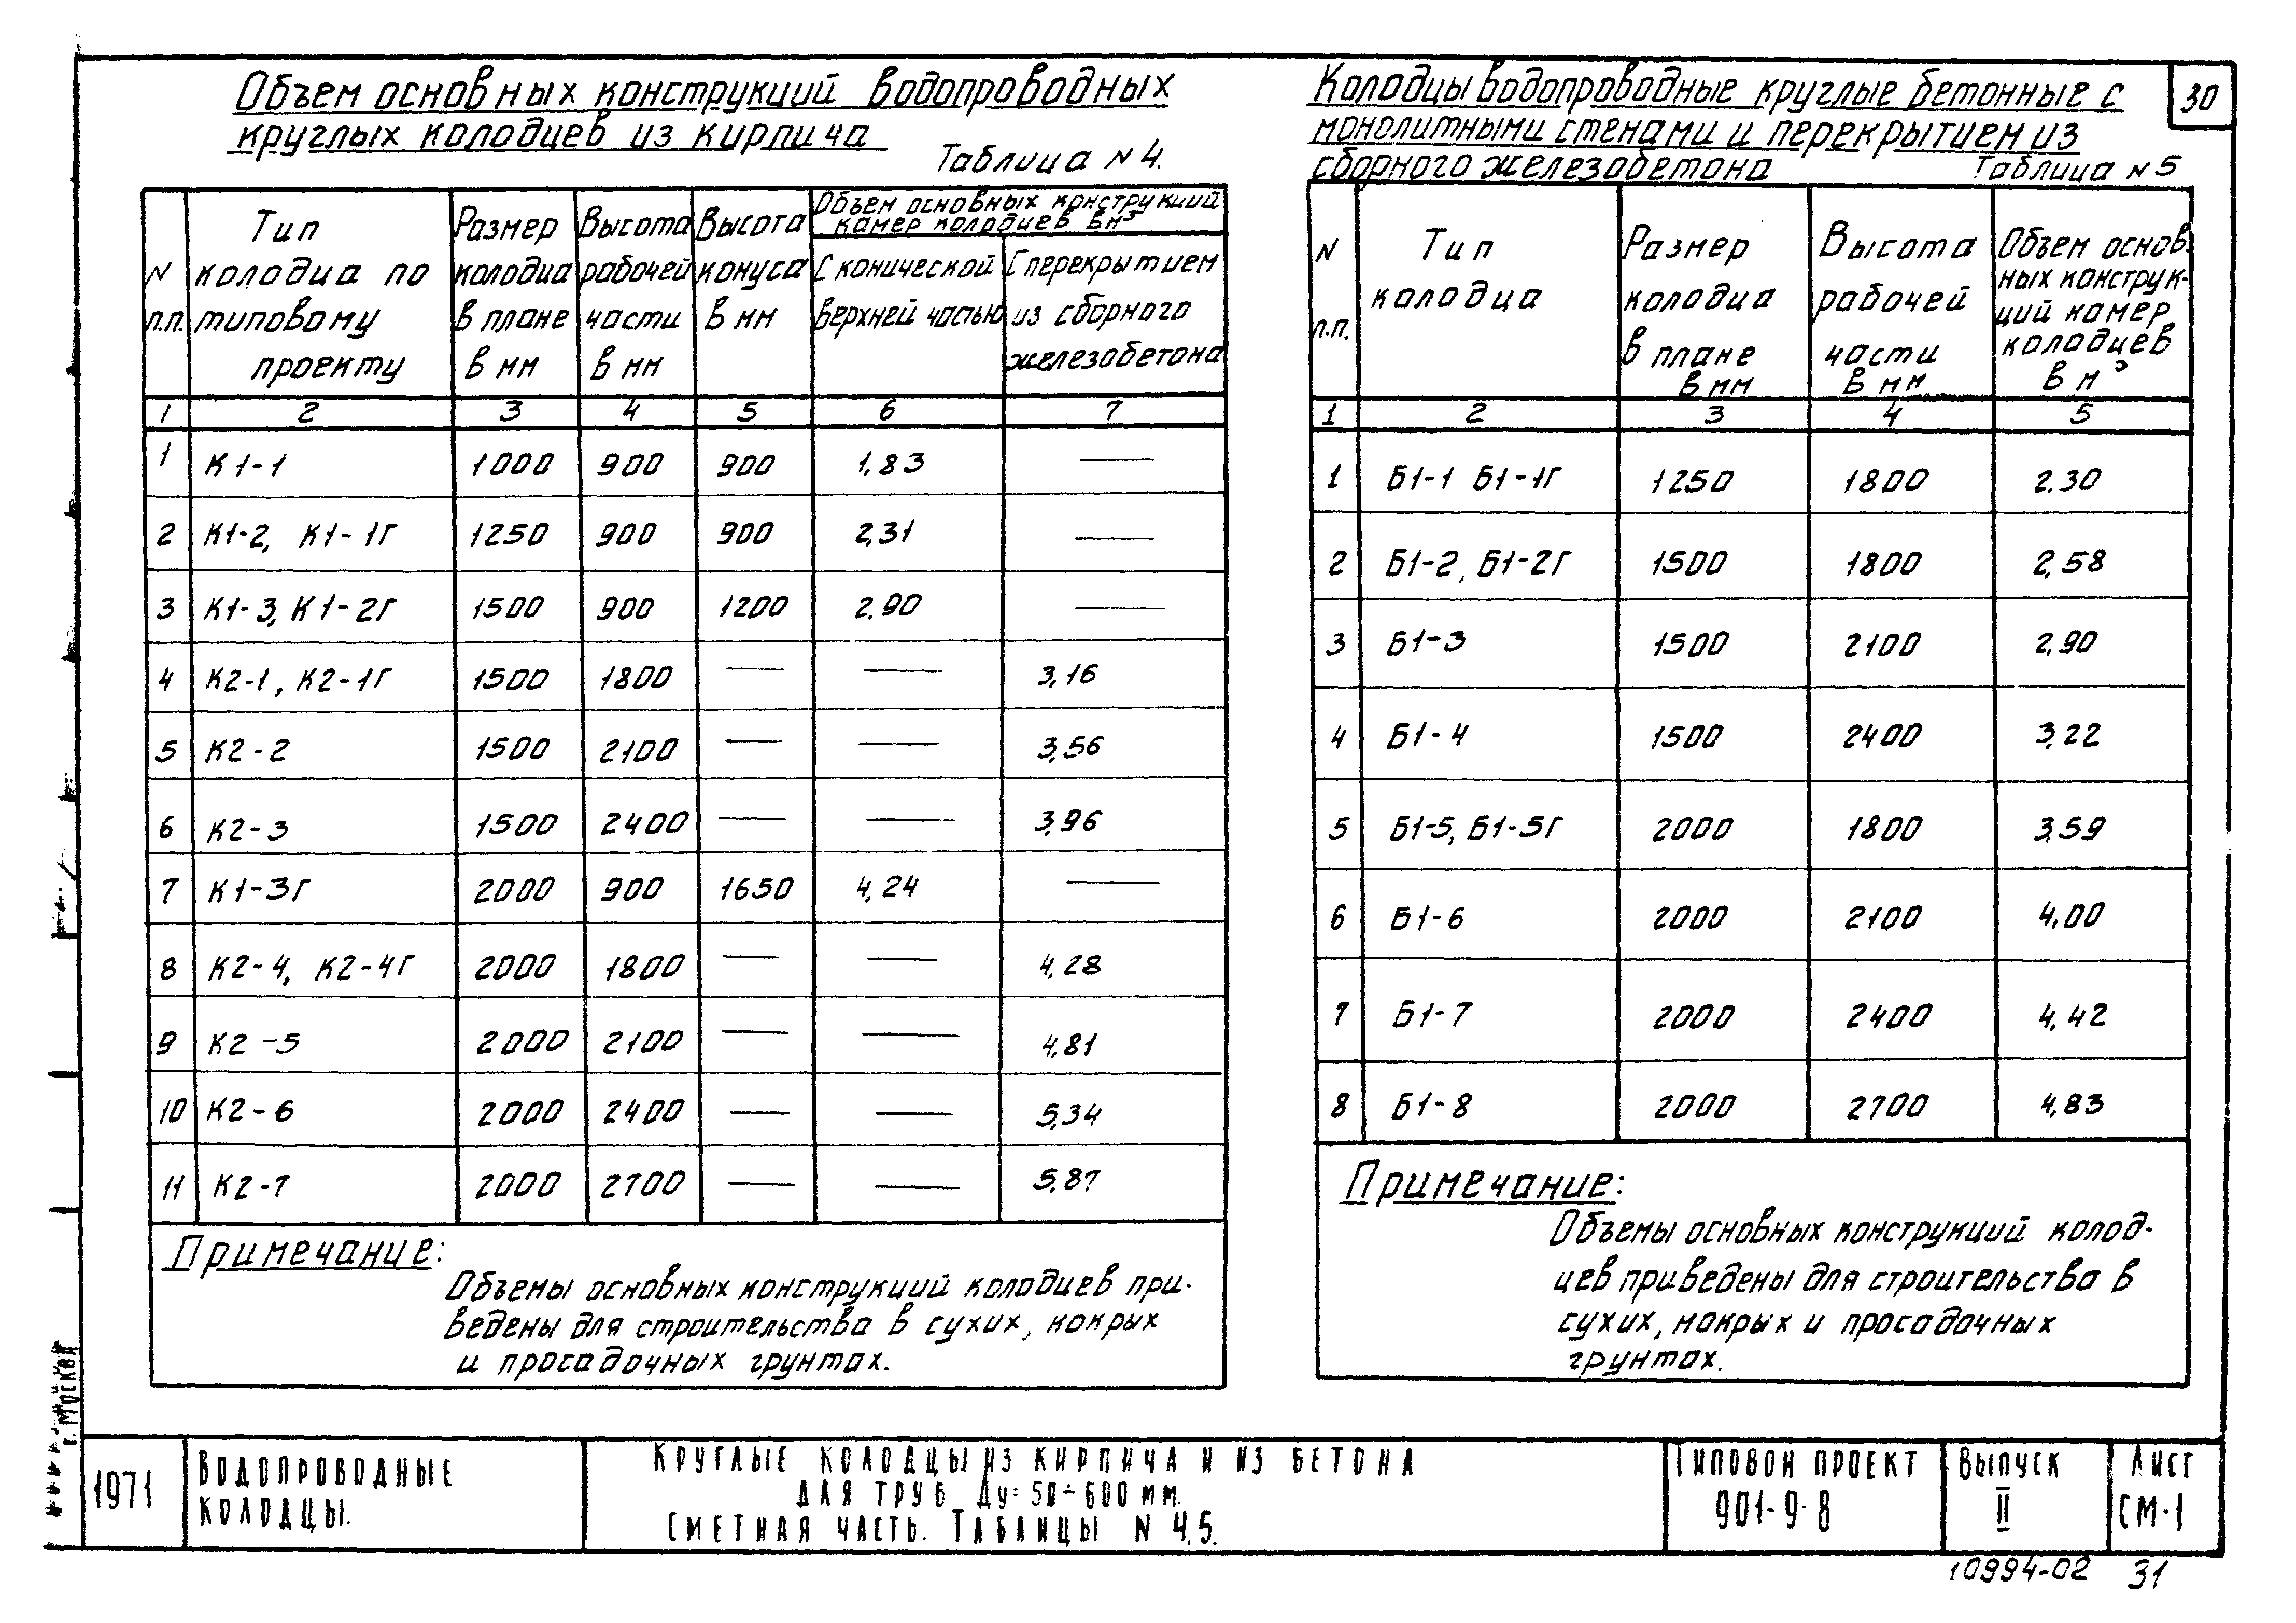 Объем основных конструкций водопроводных
круглых колодцев из кирпича
Таблица N 4.
N п.п. | Тип колодца по типовому проекту | Размер колодца в плане в мм | Высота рабочей части в мм | Высота конуса в мм | Объем основных конструкций камер колодцев в м³
С конической верхней частью | С перекрытием из сборного железобетона
1 2 3 4 5 6 7
1 К1-1 1000 900 900 1,83 —
2 К1-2, К1-1Г 1250 900 900 2,31 —
3 К1-3, К1-2Г 1500 900 1200 2.90 —
4 К2-1, К2-1Г 1500 1800 — — 3,16
5 К2-2 1500 2100 — — 3,56
6 К2-3 1500 2400 — — 3,96
7 К1-3Г 2000 900 1650 4,24 —
8 К2-4, К2-4Г 2000 1800 — — 4,28
9 К2-5 2000 2100 — — 4,81
10 К2-6 2000 2400 — — 5,34
11 К2-7 2000 2700 — — 5,87
Примечание:
Объемы основных конструкций колодцев при-
ведены для строительства в сухих, мокрых
и просадочных грунтах.
Колодцы водопроводные круглые бетонные с
монолитными стенами и перекрытием из
сборного железобетона
Таблица N 5
30
N п.п. | Тип колодца | Размер колодца в плане в мм | Высота рабочей части в мм | Объем основ- ных конструк- ций камер колодцев в м³
1 2 3 4 5
1 Б1-1 Б1-1Г 1250 1800 2.30
2 Б1-2, Б1-2Г 1500 1800 2,58
3 Б1-3 1500 2100 2,90
4 Б1-4 1500 2400 3,22
5 Б1-5, Б1-5Г 2000 1800 3,59
6 Б1-6 2000 2100 4,00
7 Б1-7 2000 2400 4,42
8 Б1-8 2000 2700 4,83
Примечание:
Объемы основных конструкций колод-
цев приведены для строительства в
сухих, мокрых и просадочных
грунтах.
г. Москва
1971
Водопроводные
колодцы.
Круглые колодцы из кирпича и из бетона
для труб Ду=50÷600 мм.
Сметная часть. Таблицы N 4,5.
Типовой проект
901-9-8
Выпуск
II
Лист
СМ-1
10994-02 31